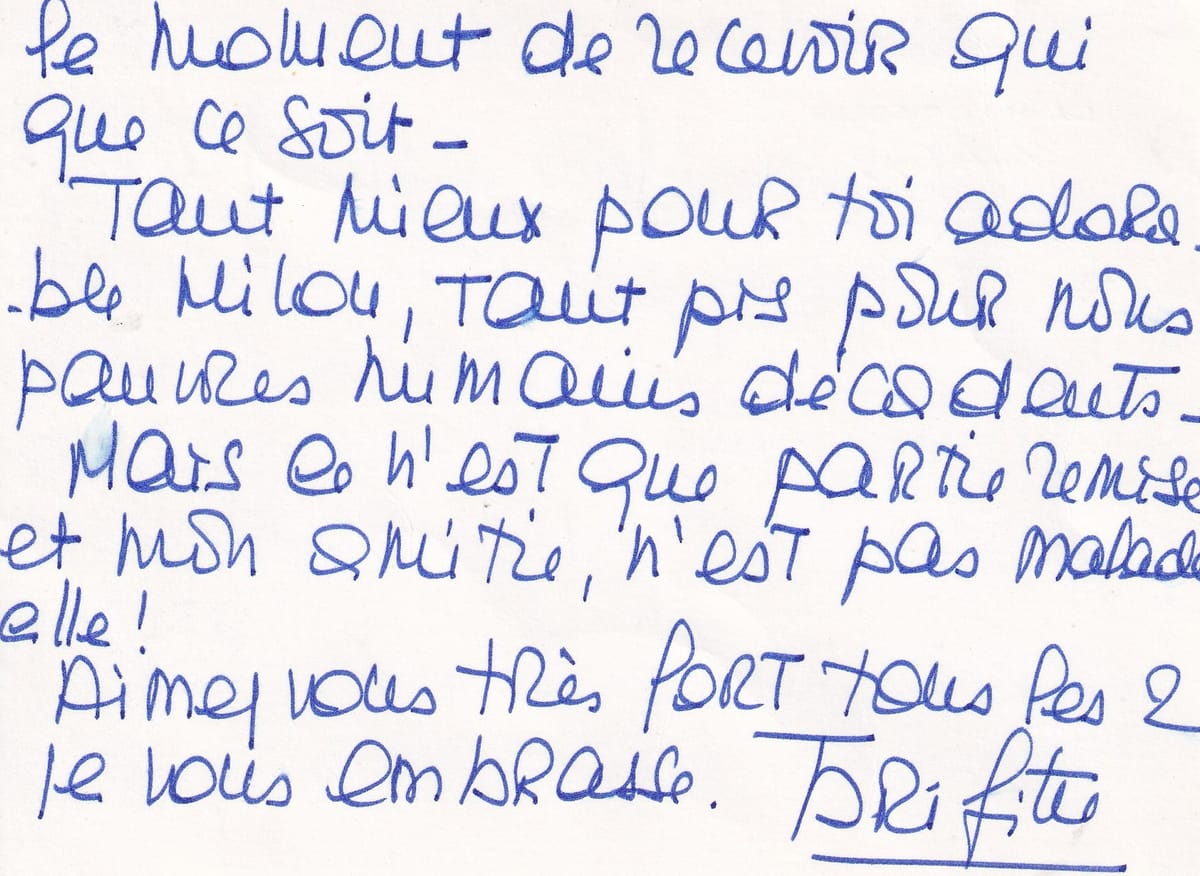 le moment de recevoir qui
que ce soit -
Tant mieux pour toi adora-
-ble Milou, Tant pis pour nous
pauvres humains décadents -
Mais ce n'est que partie remise
et mon amitié, n'est pas malade
elle !
Aimez vous très fort tous les 2
Je vous embrasse. Brigitte